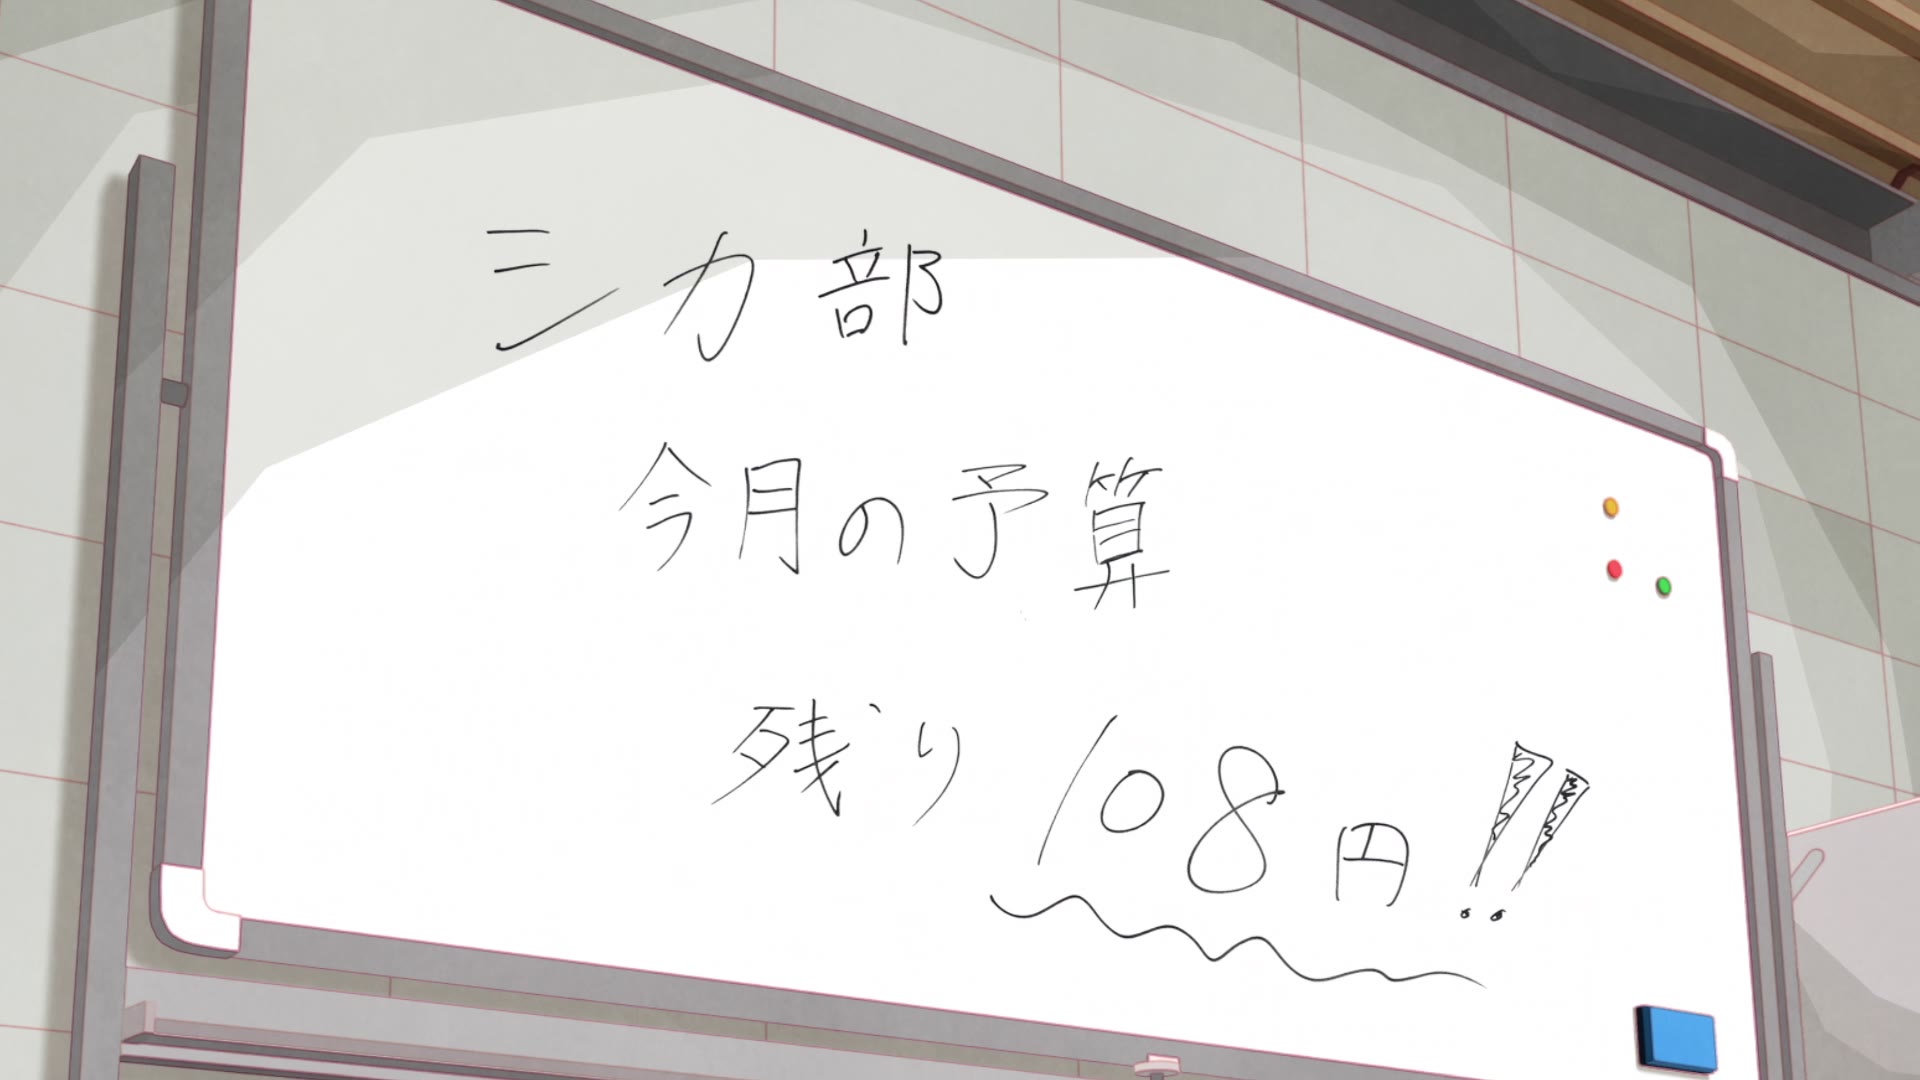 シカ部
今月の予算
残り108円!!